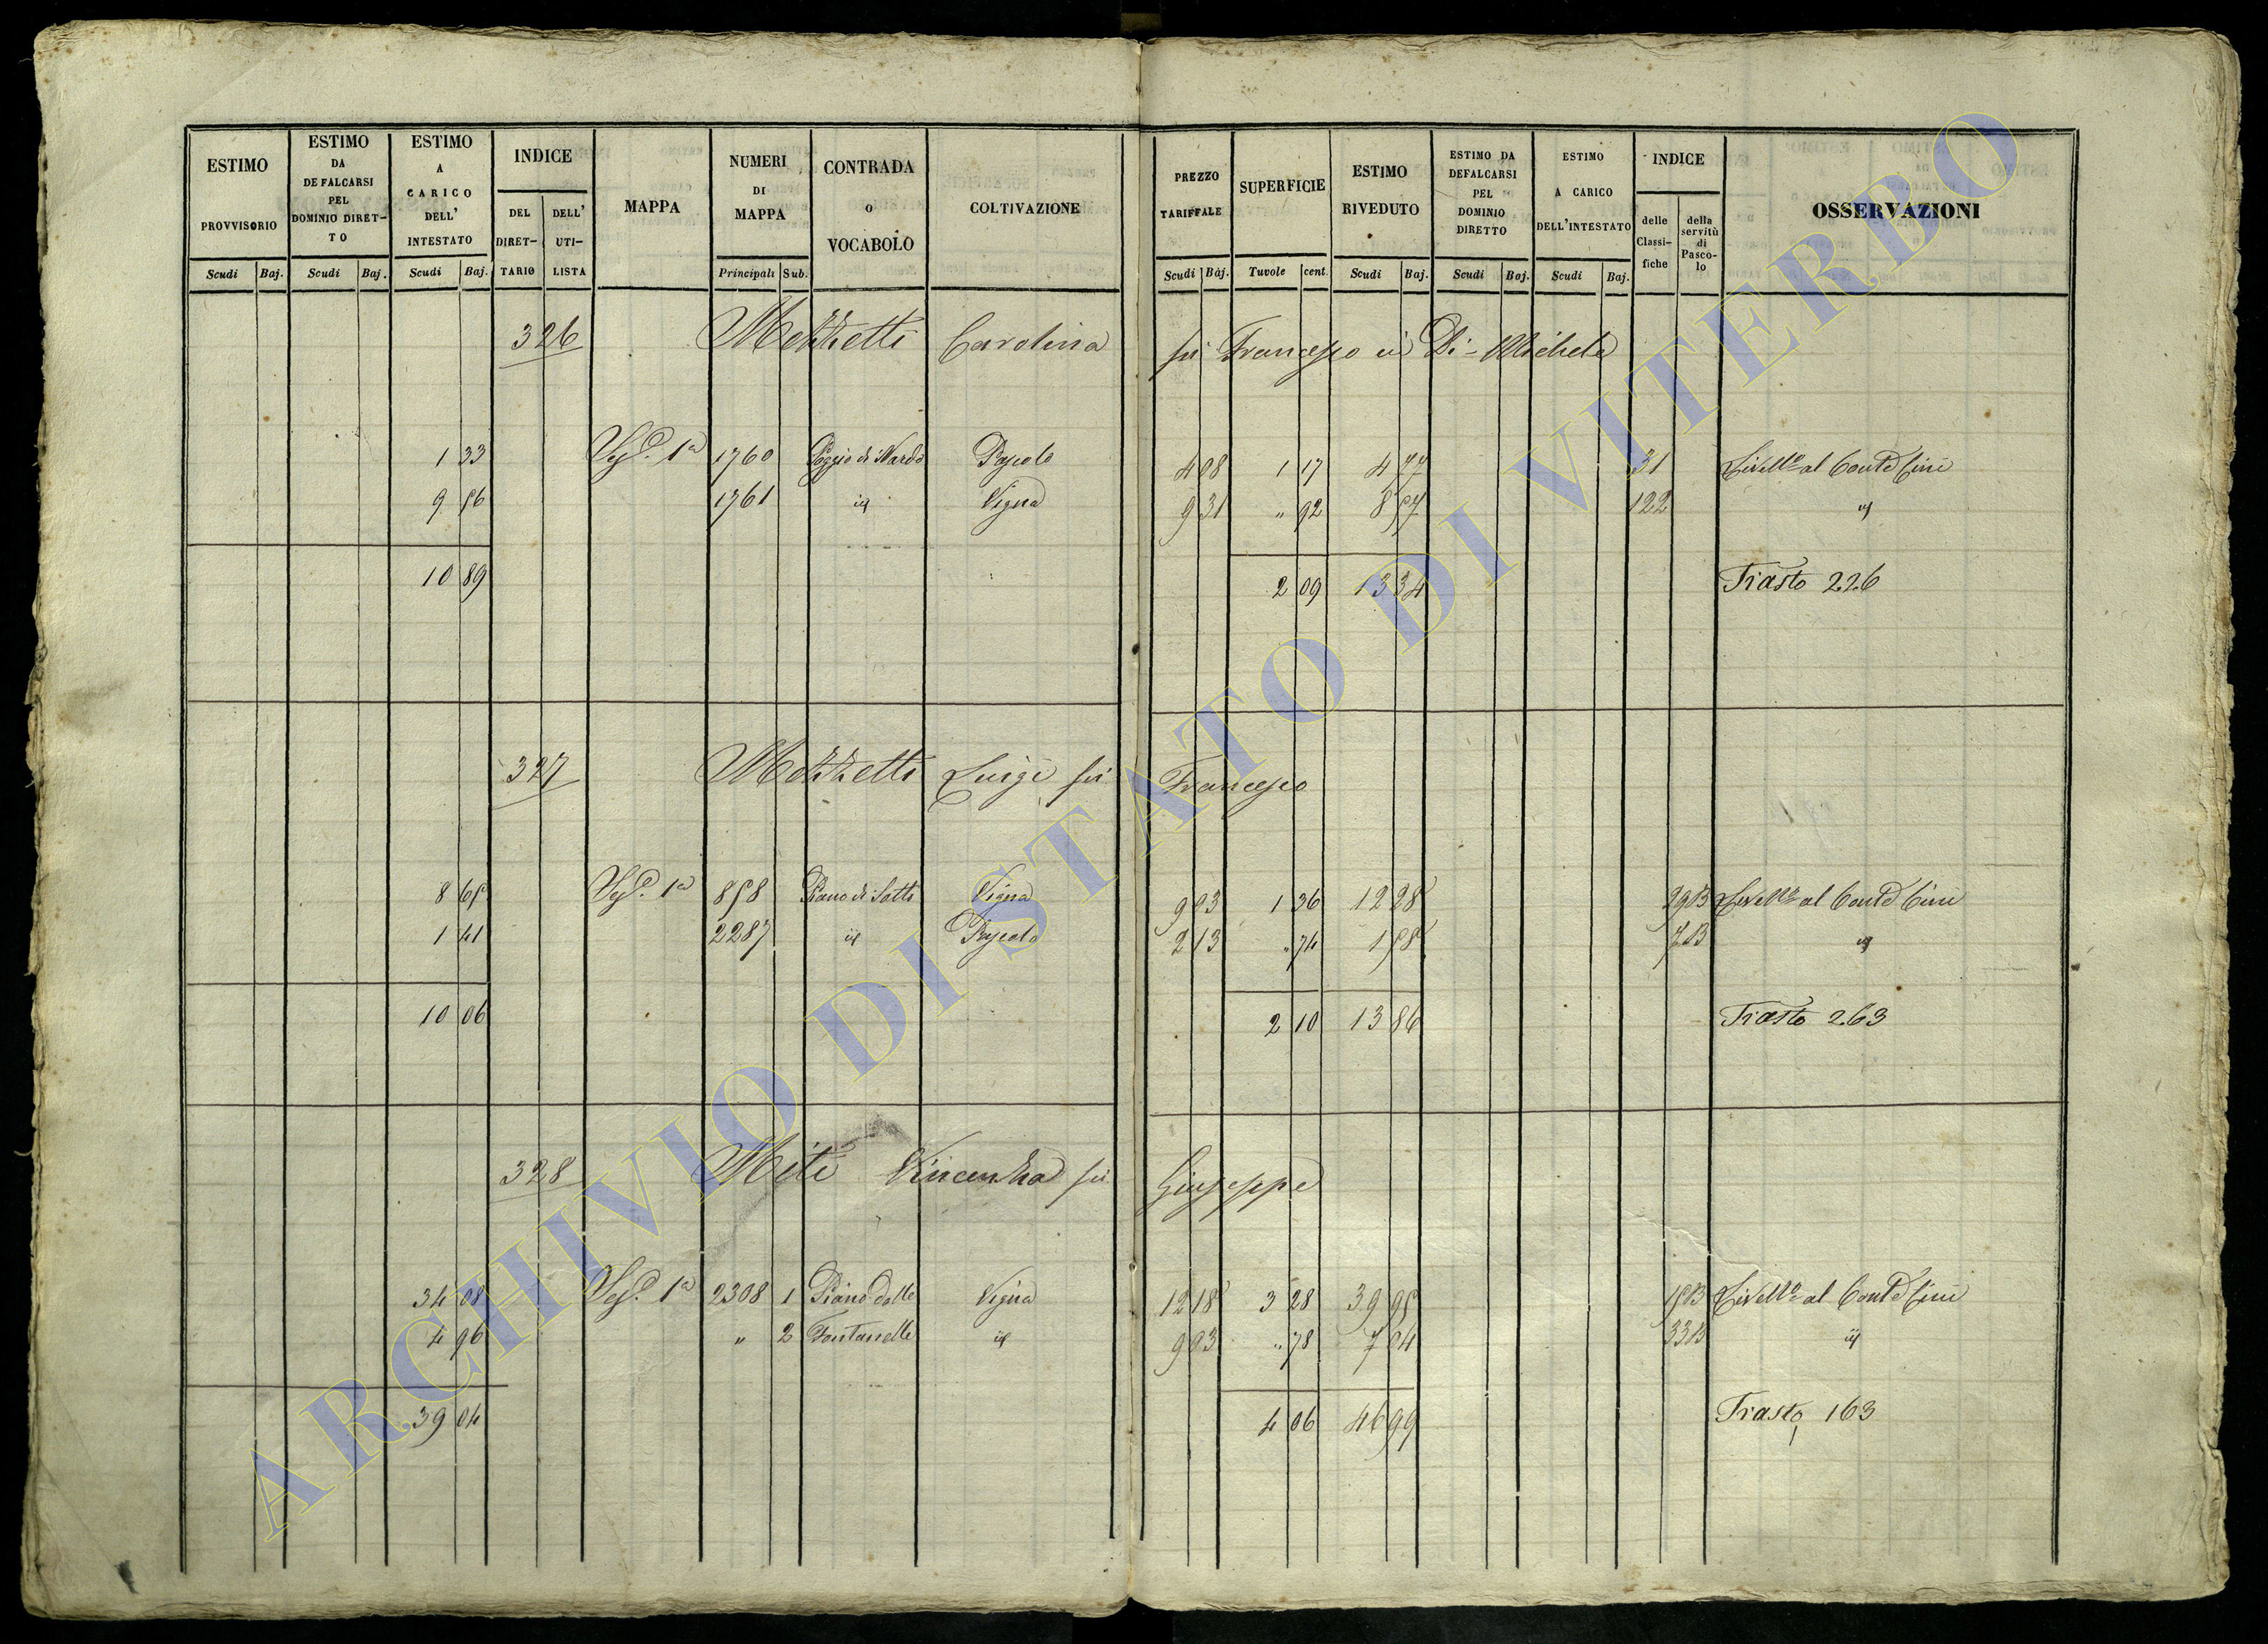 ESTIMO PROVVISORIO
ESTIMO DA DEFALCARSI PEL DOMINIO DIRET-TO
ESTIMO A CARICO DELL' INTESTATO
INDICE
DEL DIRET-TARIO
DELL' UTI-LISTA
MAPPA
NUMERI DI MAPPA
CONTRADA o VOCABOLO
COLTIVAZIONE
PREZZO TARIFFALE
SUPERFICIE
ESTIMO RIVEDUTO
ESTIMO DA DEFALCARSI PEL DOMINIO DIRETTO
ESTIMO A CARICO DELL'INTESTATO
INDICE
delle Classi-fiche
della servitù di Pasco-lo
OSSERVAZIONI
Scudi Baj. Scudi Baj. Scudi Baj. Principali Sub. Scudi Baj. Tavole cent. Scudi Baj. Scudi Baj. Scudi Baj.
326 Mezzetti Carolina fu Francesco in Di-Michele
1 33 1a 1760 Poggio di Nardo Pascolo 4 08 1 17 4 77 31 Livello al Conte Cini
9 56 1761 id Vigna 9 31 " 92 8 57 122 id
10 89 2 09 13 34 Trasto 226
327 Mezzetti Luigi fu Francesco
8 65 1a 858 Piano di Sotto Vigna 9 03 1 36 12 28 Livello al Conte Cini
1 41 2287 id Pascolo 2 13 " 74 1 58 id
10 06 2 10 13 86 Trasto 263
328 Miti Vincenza fu Giuseppe
34 08 1a 2308 1 Piano delle Vigna 12 18 3 28 39 95 Livello al Conte Cini
4 96 " 2 Fontanelle id 9 03 " 78 7 04 id
39 04 4 06 46 99 Trasto 163
ARCHIVIO DI STATO DI VITERBO